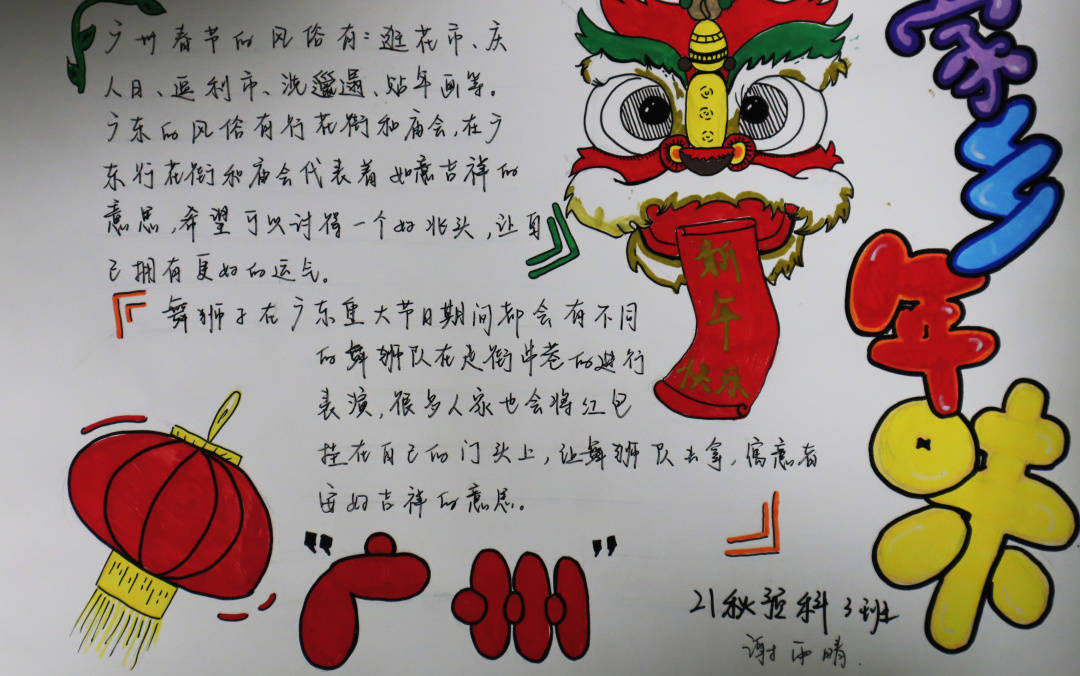 广州春节的风俗有:逛花市、庆
人日、逗利市、洗邋遢、贴年画等。
广东的风俗有行花街和庙会,在广
东行花街和庙会代表着如意吉祥的
意思,希望可以讨得一个好兆头,让自
己拥有更好的运气。
舞狮子在广东重大节日期间都会有不同
的舞狮队在走街串巷的进行
表演,很多人家也会将红包
挂在自己的门头上,让舞狮队去拿,寓意着
安好吉祥的意思。
新年快乐
家乡年味
"广州"
21秋预科3班
谢雨晴.